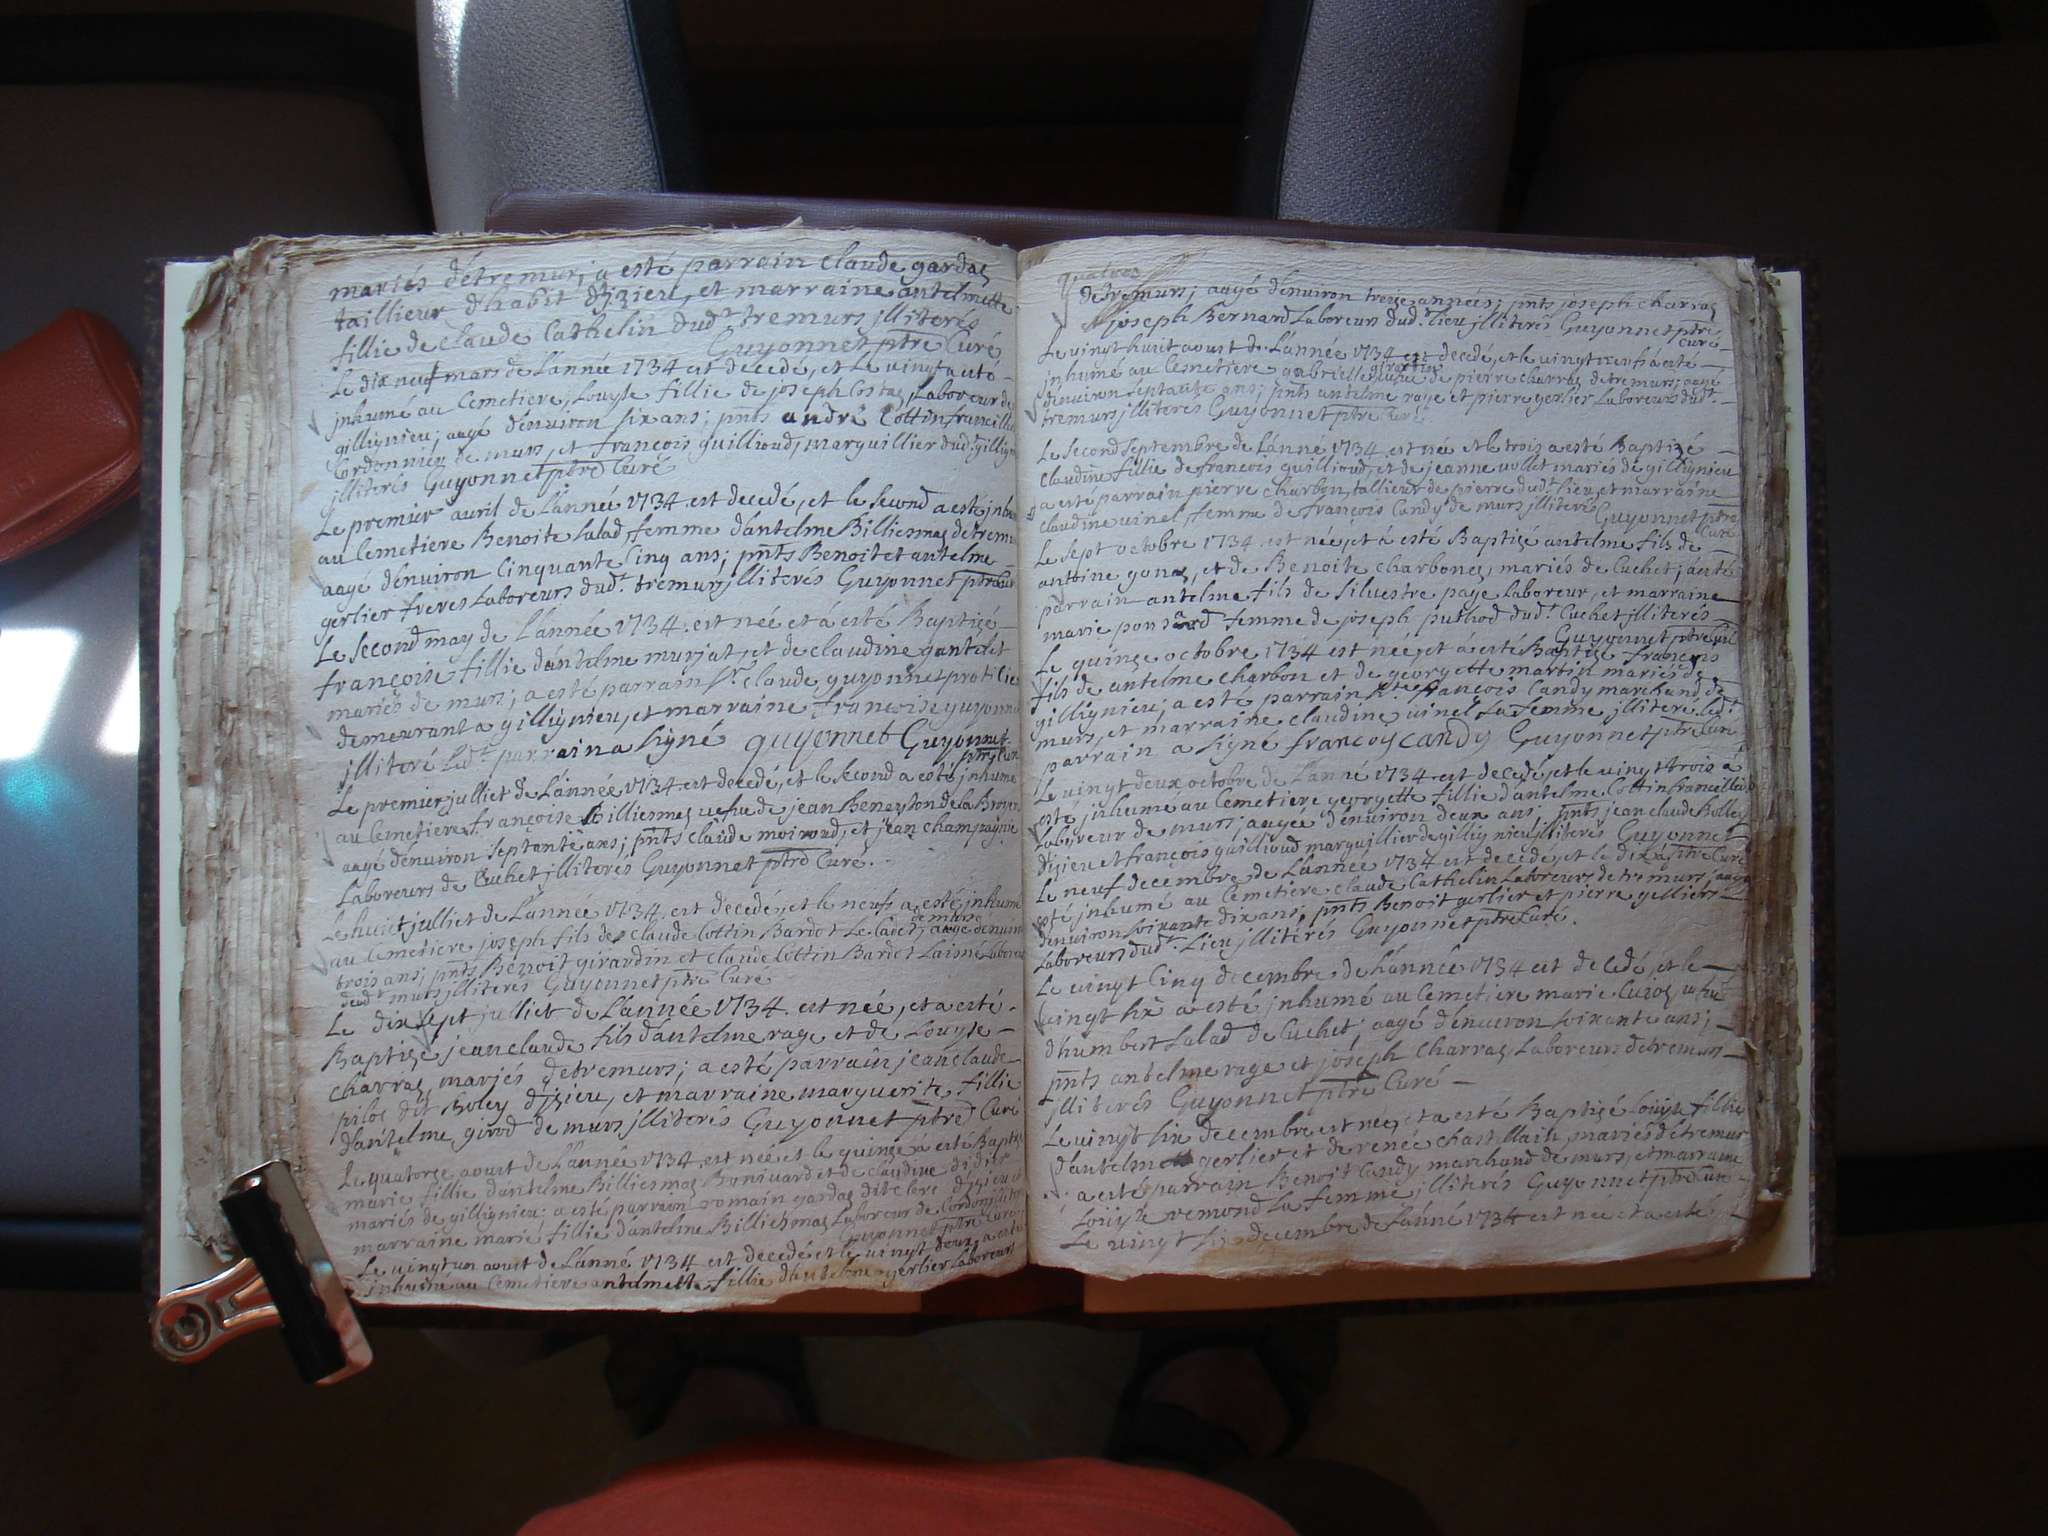 mariés détremurs; a esté parrain claude gardas
taillieur d'habit d'jzieu, et marraine antelmette
fillie de claude Cathelin dud.t tremurs jlliterés
Guyonnet ptre Curé
Le dix neuf mars de L'année 1734 est decedé, et Le vingt a estó
jnhumé au Cemetiere, Louyse fillie de joseph Costaz Laboreur de
gillignieu; aagé d'environ six ans; pñts andré Cottin francillie
Cordonnier de murs, et françois guillioud marguillier dud.t gillign
jlliterés Guyonnet ptre Curé
Le premier auril de L'année 1734 est decedé, et le second a esté jnhu
au Cemetiere Benoite Salad femme d'antelme Billiemaz detremu
aagé d'enuiron Cinquante Cinq ans; pñts Benoit et antelme
gerlier freres Laboreurs dud.t tremurs jlliterés Guyonnet ptre Cur
Le Second may de L'année 1734 est née et á esté Baptizé
françoise fillie d'antelme murjat, et de claudine gantelet
mariés de murs; a esté parrain S.r claude guyonnet praticie
demeurant a gillignieu, et marraine francoise guyonn
jlliteré Led.t parrain a signé guyonnet Guyonnet
ptre Cur
Le premier julliet de L'année 1734 est decedé, et le second a esté jnhumé
au Cemetiere françoise Billiemaz uefue de jean Beneyton de la Bruy
aagé d'enuiron septante ans; pñts claude moiroud, et jean champagnie
Laboreurs de Cuchet jlliterés Guyonnet ptre Curé.
Le huit julliet de L'année 1734 est decedé, et le neuf a esté jnhumé
au Cemetiere joseph fils de claude Cottin Bardot Le Cadet de murs aagé denuiro
trois ans; pñts Benoit girardin et claude Cottin Bardot Laisné Laboreu
dud.t murs jlliterés Guyonnet ptre Curé
Le dix sept julliet de L'année 1734 est née, et a esté
Baptizé jean claude fils d'antelme rage et de Louyse
charraz mariés detremurs; a esté parrain jean claude
piloz dit Boley d'jzieu, et marraine marguerite fillie
d'antelme girod de murs jlliterés Guyonnet ptre Curé
Le quatorze aoust de L'année 1734 est née et le quinze á esté Bapti
marie fillie d'antelme Billiemaz Boniuard et de claudine didier
mariés de gillignieu; a esté parrain romain gardaz d'jzieu et
marraine marie fillie d'antelme Billiemaz Laboreur de Cordon jlliteres
Guyonnet ptre Curé
Le vingt un aoust de L'anné 1734 est decedé et le uingt deux a esté
jnhumé au Cemetiere antelmette fillie d'antelme gerlier Laboreurs
quatres
de tremurs; aagé d'enuiron treze années; pñts joseph charraz
joseph Bernard Laboreurs dud.t lieu jlliterés Guyonnet ptre
Curé
Le uingt huit aoust de L'année 1734 est decedé, et le vingt neuf á esté
jnhumé au Cemetiere gabrielle uefue de pierre charraz detremurs; aagé
d'enuiron septante ans; pñts antelme rage et pierre gerlier Laboreurs dud.t
tremurs jlliterés Guyonnet ptre Curé
Le second septembre de L'anné 1734 est né et le trois a esté Baptizé
claudine fillie de francois guillioud, et de jeanne uollet mariés de gillignieu
a esté parrain pierre charbon, tallieur de pierre dud.t lieu, et marraine
claudine uinel femme de françois Candy de murs jlliterés
Guyonnet ptre
Curé
Le sept octobre 1734 est née, et á esté Baptizé antelme fils de
antoine gonaz, et de Benoite charbonez mariés de Cuchet; a esté
parrain antelme fils de siluestre page Laboreur, et marraine
marie ponsard femme de joseph puthod dud.t Cuchet jlliterés
Guyonnet ptre Curé
Le quinze octobre 1734 est née, et á esté Baptizé françois
fils de antelme charbon et de georgette martin mariés de
gillignieu; a esté parrain françois Candy marchand de
murs, et marraine claudine uinel sa femme jllitere Led.t
parrain a signé françoy candy Guyonnet ptre Curé
Le vingt deux octobre de L'anné 1734 est decedé, et le uingt trois a
esté jnhume au Cemetiere georgette fillie d'antelme Cottin francillie
Laboreur de murs; aagée d'enuiron deux ans; pñts jean claude Bolley
d'jzieu et françois guillioud marguillier de gillignieu jlliterés Guyonnet
ptre Curé
Le neuf decembre de L'année 1734 est decedé, et le dix á
esté jnhumé au Cemetiere claude Cathelin Laboreurs de tremurs; aagé
d'enuiron soixante dix ans; pñts Benoit gerlier et pierre gelliers
Laboreurs dud.t Lieu jlliterés Guyonnet ptre Curé.
Le uingt Cinq decembre de L'année 1734 est decedé, et le
uingt six a esté jnhumé au Cemetiere marie Curoz uefue
d'humbert Salad de Cuchet; aagé d'enuiron soixante ans;
pñts antelme rage et joseph charraz Laboreurs detremurs
jlliterés Guyonnet ptre Curé
Le uingt six decembre est née, et a esté Baptizé Louyse fillie
d'antelme gerlier et de renée chastillain mariés détremurs
a esté parrain Benoit Candy marchand de murs, et marraine
Louyse remond sa femme jlliterés Guyonnet ptre Curé
Le uingt six decembre de L'anné 1734 est nee et a esté